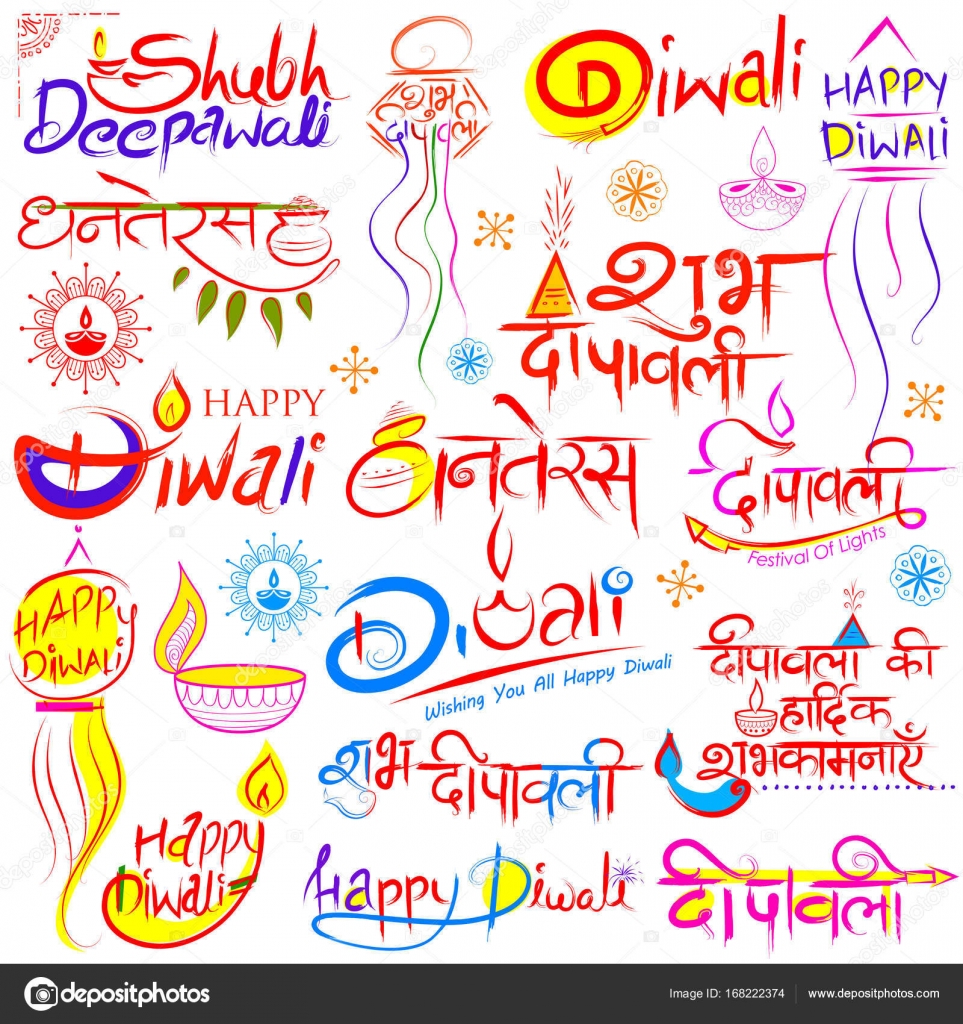 Shubh
Deepawali
शुभ
दीपावली
Diwali
HAPPY
DIWALI
धनतेरस
शुभ
दीपावली
HAPPY
Diwali
धनतेरस
दीपावली
Festival Of Lights
HAPPY
DIWALI
Diwali
Wishing You All Happy Diwali
दीपावली की
हार्दिक
शुभकामनाएँ
शुभ दीपावली
Happy
Diwali
Happy Diwali
दीपावली
depositphotos
Image ID: 168222374 www.depositphotos.com